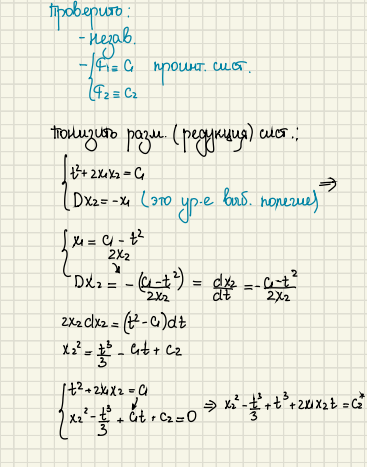 Проверить:
- незав.
- { F₁ ≡ C₁ проинт. сист.
F₂ ≡ C₂
Понизить разм. (редукция) сист.:
{ t² + 2x₁x₂ = C₁
Dx₂ = -x₁ (это ур-е выб. полегче) ⇒
{ x₁ = (C₁ - t²)/(2x₂)
Dx₂ = -((C₁ - t²)/(2x₂)) = dx₂/dt = -(C₁ - t²)/(2x₂)
2x₂dx₂ = (t² - C₁)dt
x₂² = t³/3 - C₁t + C₂
{ t² + 2x₁x₂ = C₁
x₂² - t³/3 + C₁t + C₂ = 0 ⇒ x₂² - t³/3 + t³ + 2x₁x₂t = C₂*